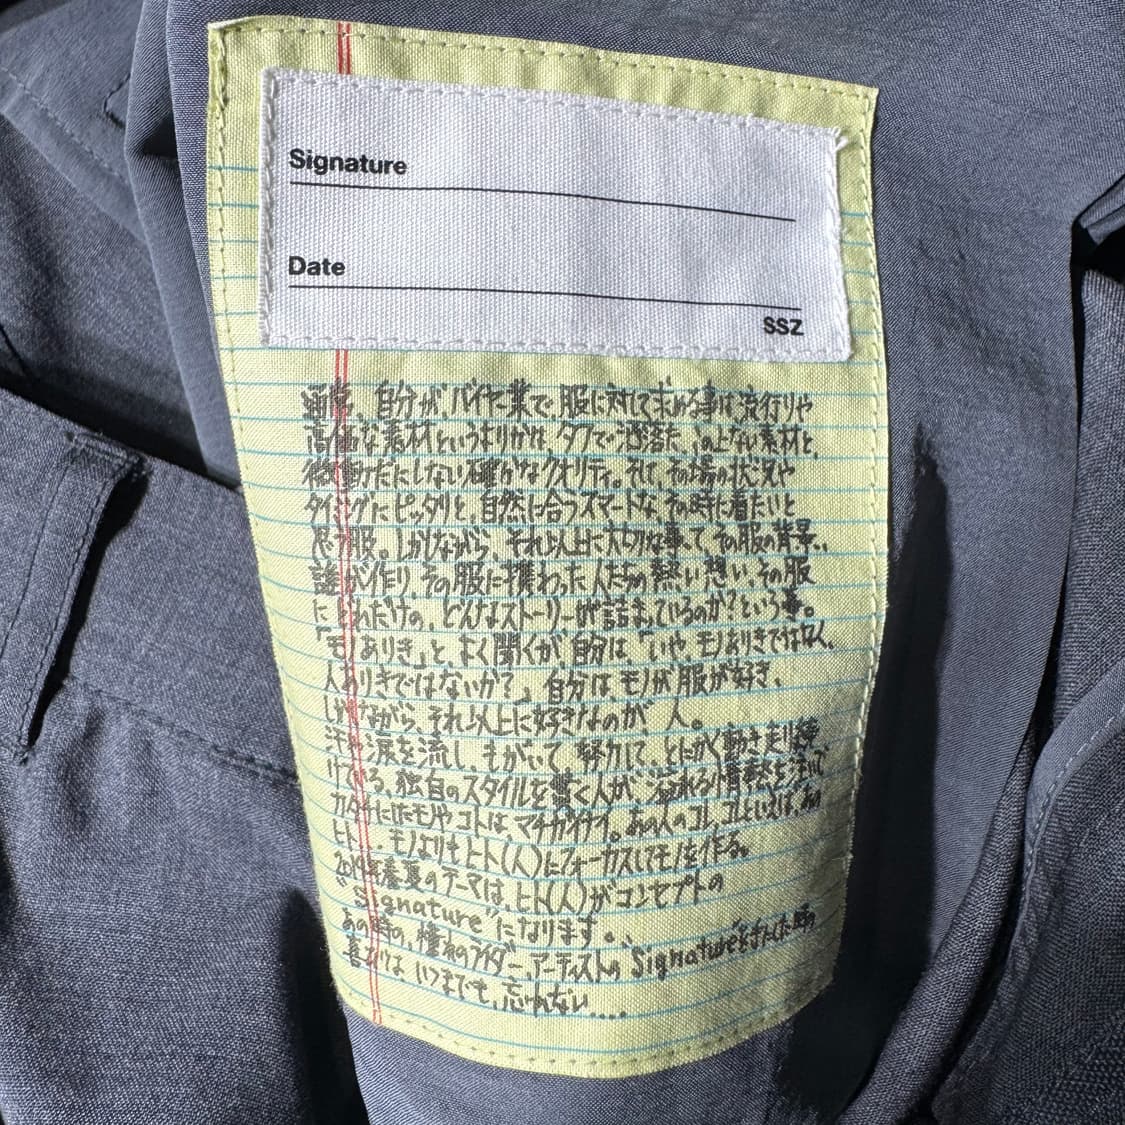 Signature
Date
SSZ
通常、自分が、バイヤー業で、服に対して求める事は流行りや
高価な素材というよりかは、タフで洒落た、この上ない素材と、
微動だにしない確かなクオリティ。そして、その場の状況や
タイミングにピッタリと、自然に合うスマートな、その時に着たいと
思う服。しかしながら、それ以上に大切な事て、その服の背景、、
誰が作り、その服に携わった人たちの熱い想い、その服
にどれだけの、どんなストーリーが詰まっているのか?という事。
「モノありき」と、よく聞くが、自分は、「いや、モノありきではなく、
人ありきではないか?」自分は、モノが服が好き、
しかしながら、それ以上に好きなのが 人。
汗や涙を流し、もがいて 努力して、とにかく動き走り続
けている、独自のスタイルを貫く人が 溢れる情熱を注いで
カタチにしたモノや コトは、マチガイナイ。あの人のコレ、コレといえば、あの
ヒト... モノよりもヒト(人)にフォーカスしてモノを作る。
2019年春夏のテーマは、ヒト(人)がコンセプトの
“Signature”になります。
あの時の、憧れのライダー、アーティストの“Signature”をもらった時の
喜びは いつまでも、忘れない....